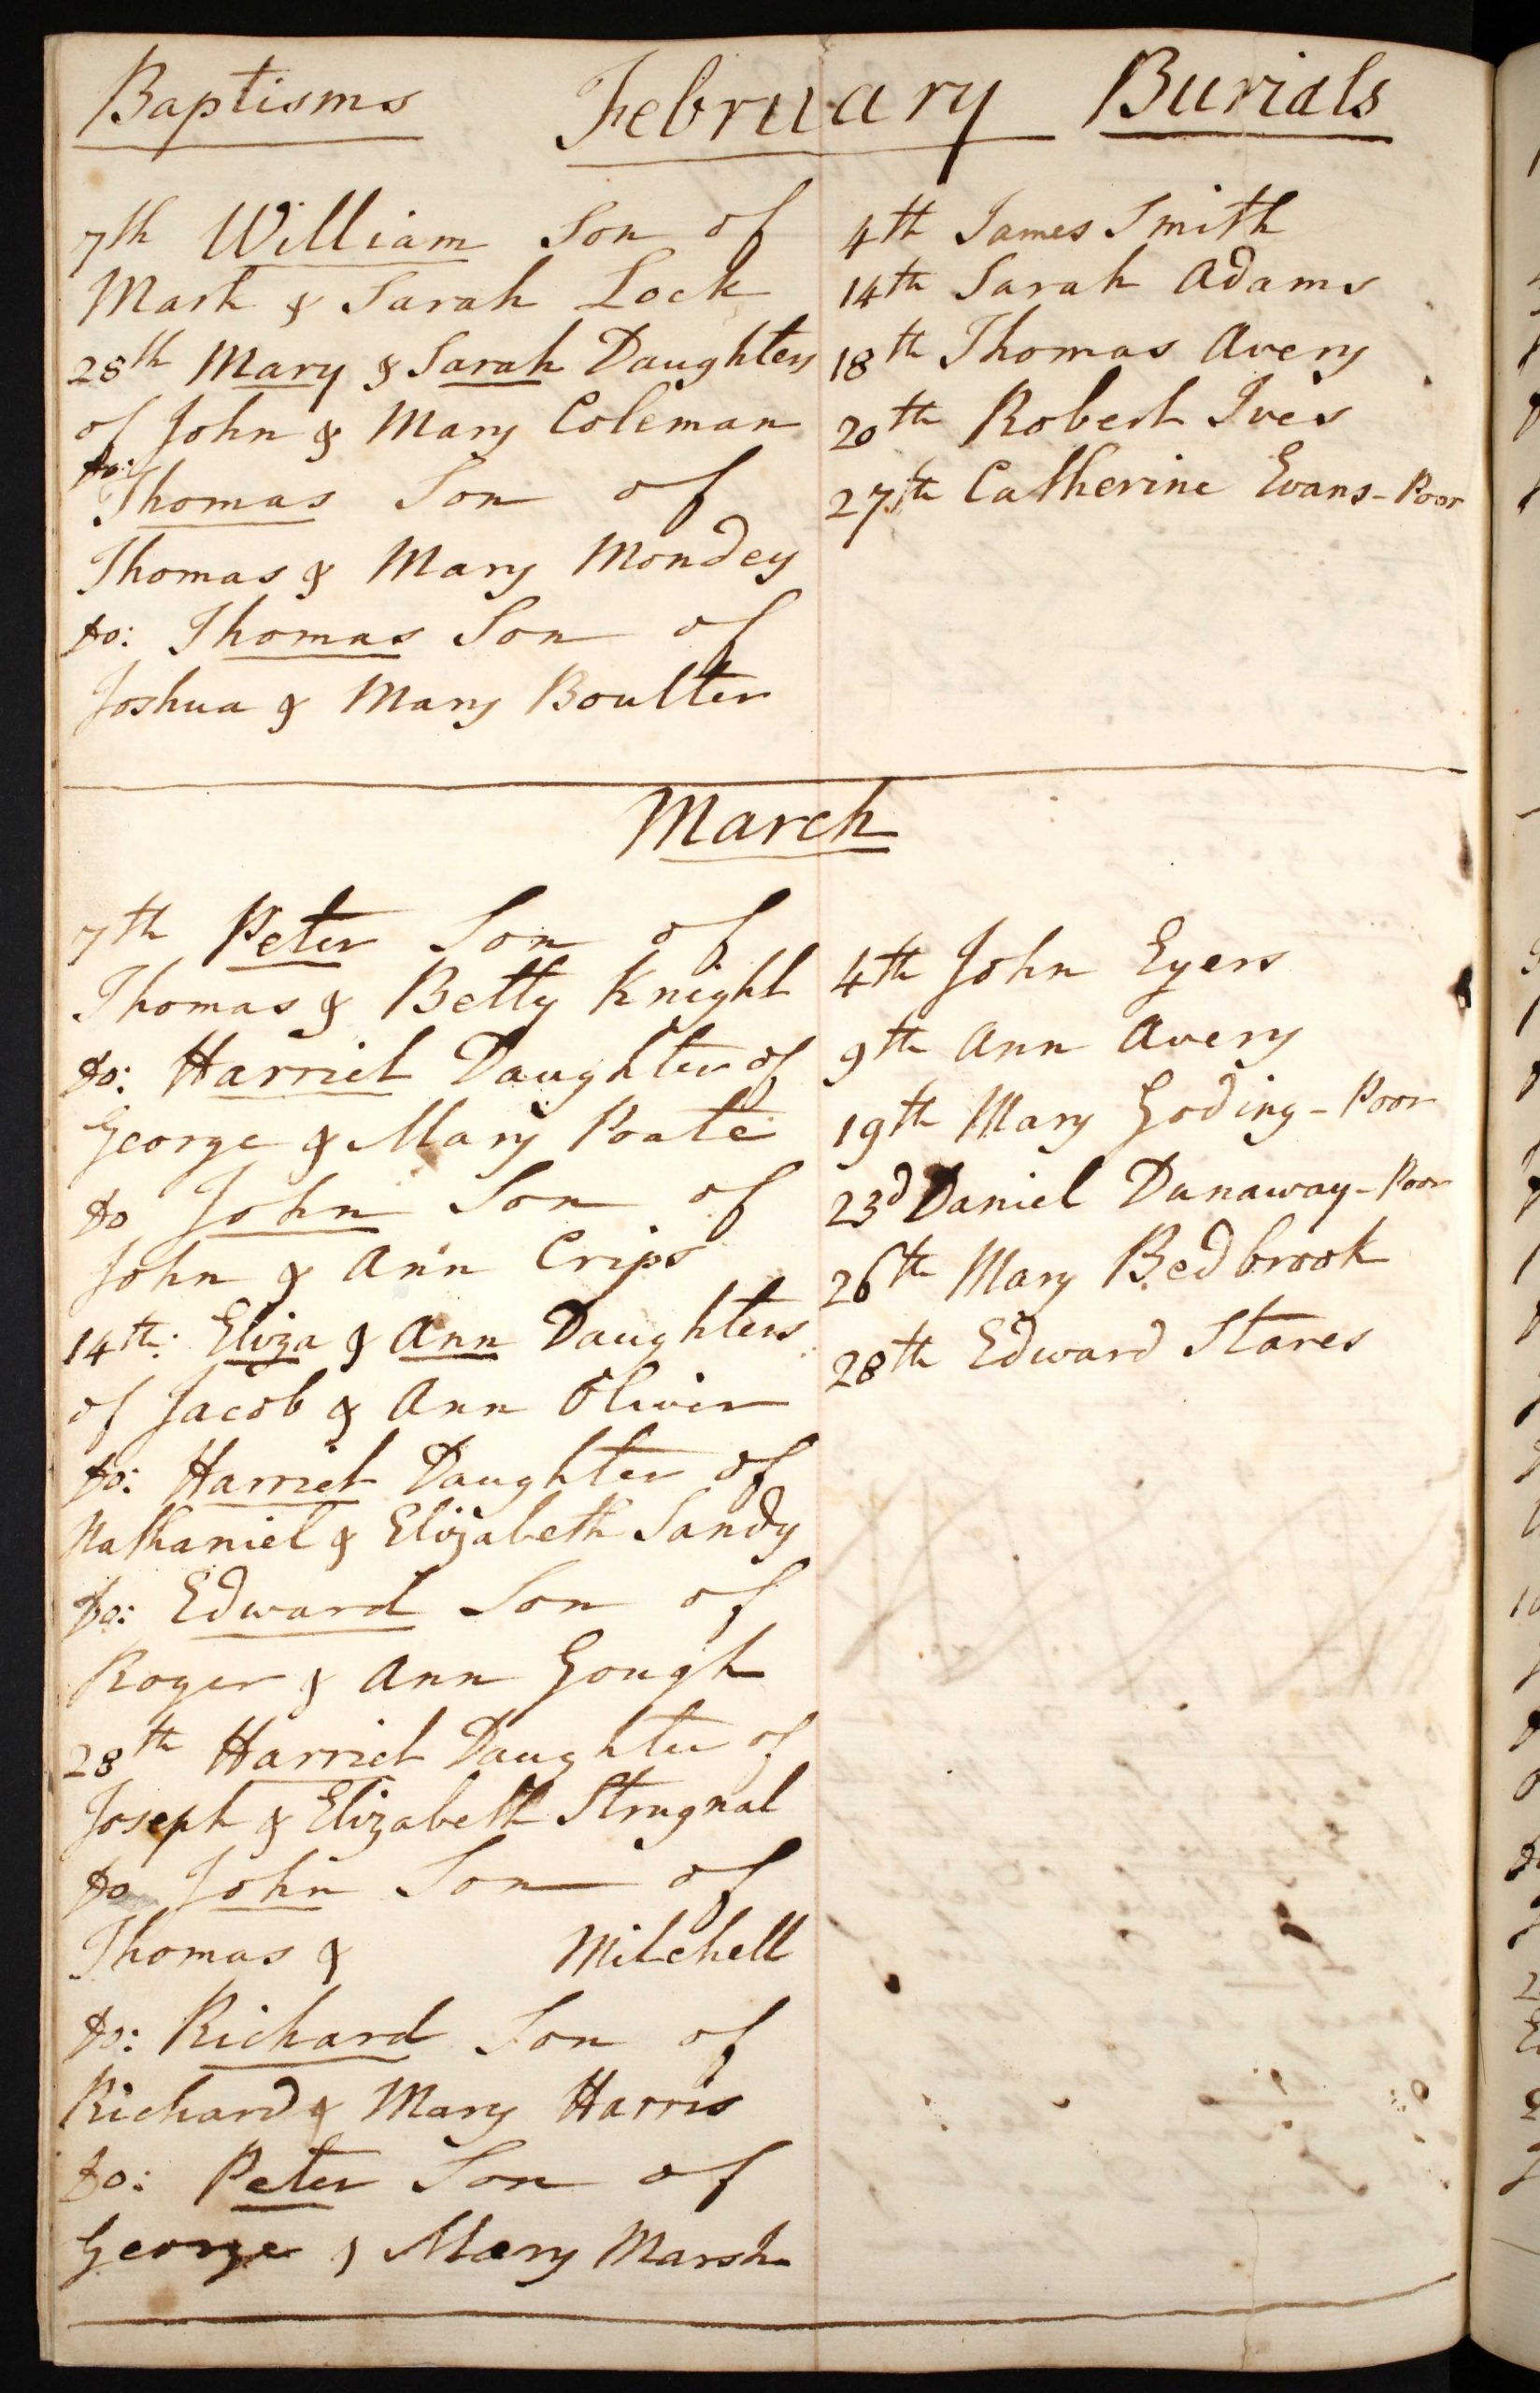 Baptisms February Burials
7th William Son of
Mark & Sarah Lock
28th Mary & Sarah Daughters
of John & Mary Coleman
Do: Thomas Son of
Thomas & Mary Mondey
Do: Thomas Son of
Joshua & Mary Boulter
4th James Smith
14th Sarah Adams
18th Thomas Avery
20th Robert Ives
27th Catherine Evans - Poor
March
7th Peter Son of
Thomas & Betty Knight
Do: Harriet Daughter of
George & Mary Poate
Do John Son of
John & Ann Crips
14th: Eliza & Ann Daughters
of Jacob & Ann Oliver
Do: Harriet Daughter of
Nathaniel & Elizabeth Sandy
Do: Edward Son of
Roger & Ann Gough
28th Harriet Daughter of
Joseph & Elizabeth Strugnal
Do John Son of
Thomas & Mitchell
Do: Richard Son of
Richard & Mary Harris
Do: Peter Son of
George & Mary Marsh
4th John Eyers
9th Ann Avery
19th Mary Goding - Poor
23d Daniel Dunaway - Poor
26th Mary Bedbrook
28th Edward Stares